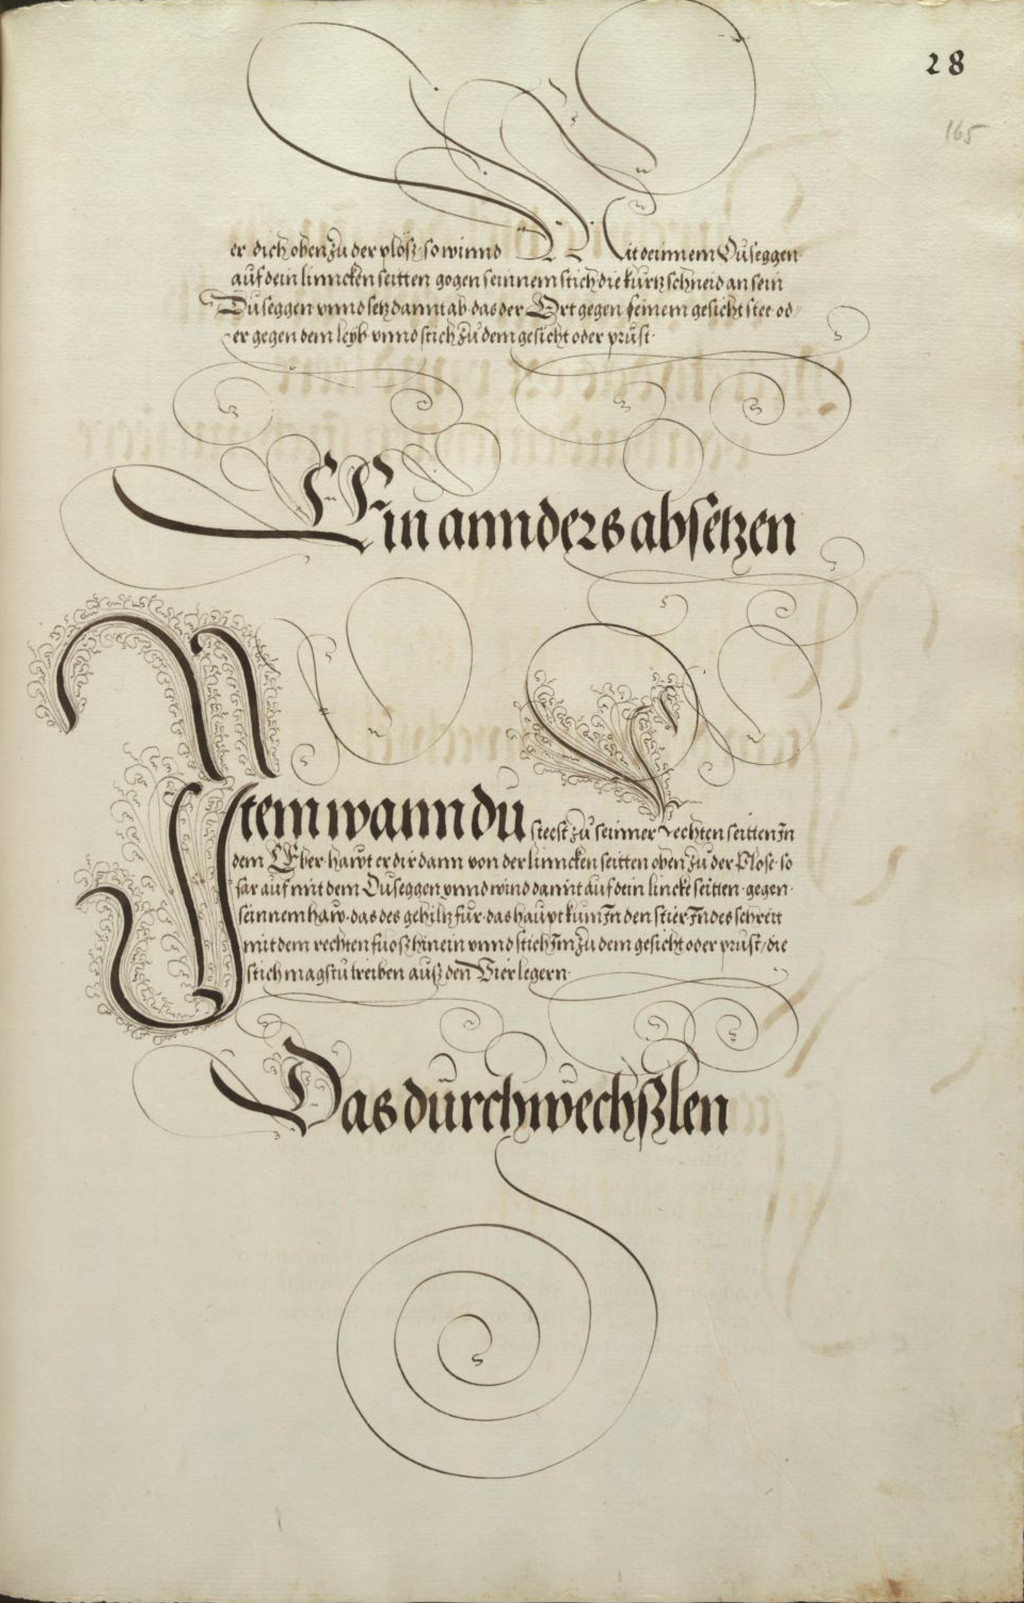 28
165
er dich oben zu der plosz so winnd Mit deinnem Duseggen
auf dein linncken seitten gogen seinnem stich die kurtz schneid an sein
Duseggen vnnd setz dannt ab das der Ort gegen seinem gesicht stet od/
er gegen dem leyb vnnd stich zu dem gesicht oder prust
Ein annders absetzen
Item wann du steest zu seinner rechten seitten In
dem Eber hawt er dir dann von der linncken seitten oben zu der Plose so
far auf mit dem Duseggen vnnd wind damit auf dein lincke seitten gegen
seinnem haw das des gehiltz fur das haupt kum In den stier Indes schreit
mit dem rechten fuosz hinein vnnd stich Im zu dem gesicht oder prust/ die
stich magstu treiben ausz den Vier legern
Das durchwechszlen